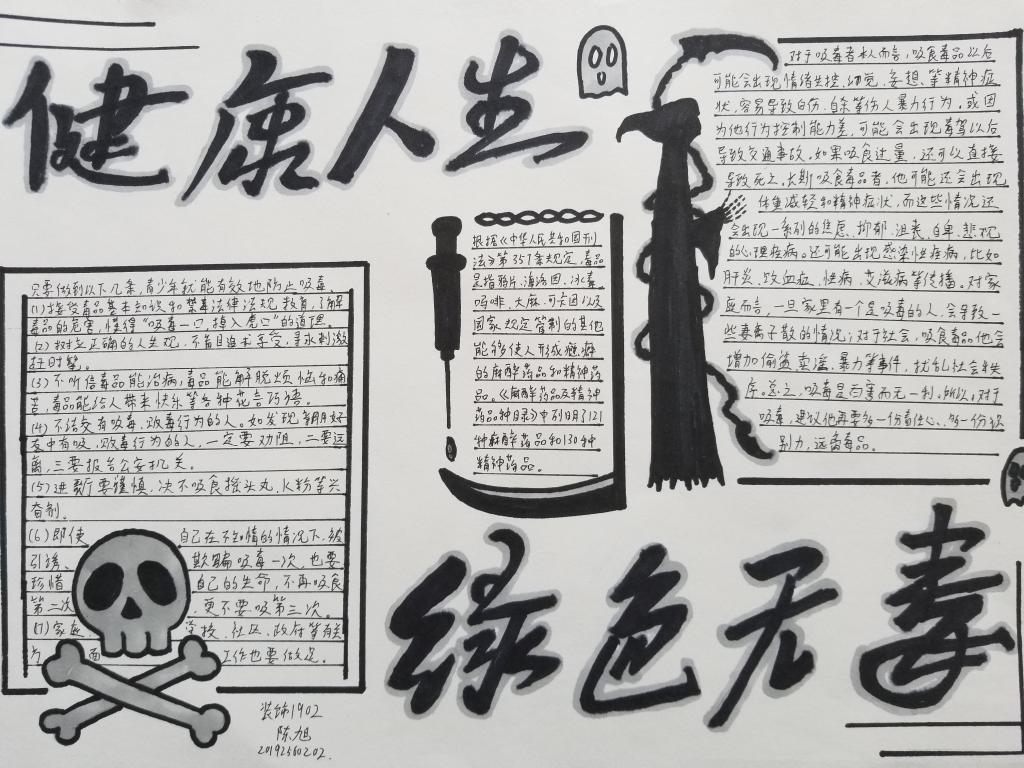 健康人生
只要做到以下几条,青少年就能有效地防止吸毒.
(1)接受毒品基本知识和禁毒法律法规教育,了解
毒品的危害,懂得"吸毒一口,掉入虎口"的道理.
(2)树立正确的人生观,不盲目追求享受,寻求刺激
赶时髦。
(3)不听信毒品能治病,毒品能解脱烦恼和痛
苦,毒品能给人带来快乐等各种花言巧语。
(4)不结交有吸毒、贩毒行为的人。如发现朝月好
友中有吸、贩毒行为的人,一定要劝阻,二要远
离,三要报告公安机关。
(5)进歌厅要谨慎,决不吸食摇头丸、K粉等兴
奋剂.
(6)即使自己在不知情的情况下,被
引诱、欺骗吸毒一次,也要
珍惜自己的生命,不再吸食
第二次,更不要吸第三次。
(7)家庭、学校、社区、政府等有关
方面工作也要做足。
装饰1902
陈旭
20192560202.
根据《中华人民共和国刑
法》第357条规定,毒品
是指鸦片、海洛因、冰毒、
吗啡、大麻、可卡因以及
国家规定管制的其他
能够使人形成瘾癖
的麻醉药品和精神药
品。《麻醉药品及精神
药品品种目录》中列明了121
种麻醉药品和130种
精神药品。
对于吸毒者本人而言,吸食毒品以后
可能会出现情绪失控、幻觉、妄想、等精神症
状,容易导致自伤、自杀等伤人暴力行为。或因
为他行为控制能力差,可能会出现毒驾以后
导致交通事故。如果吸食过量,还可以直接
导致死亡。长期吸食毒品者,他可能还会出现
体重减轻和精神症状,而这些情况还
会出现一系列的焦虑、抑郁、沮丧、自卑、悲观
的心理疾病。还可能出现感染性疾病,比如
肝炎、败血症、性病、艾滋病等传播。对家
庭而言,一旦家里有一个是吸毒的人,会导致一
些妻离子散的情况;对于社会,吸食毒品他会
增加偷盗、卖淫、暴力等事件,扰乱社会秩
序。总之,吸毒是百害而无一利,所以,对于
吸毒,建议他再要多一份责任心、多一份识
别力,远离毒品。
绿色无毒